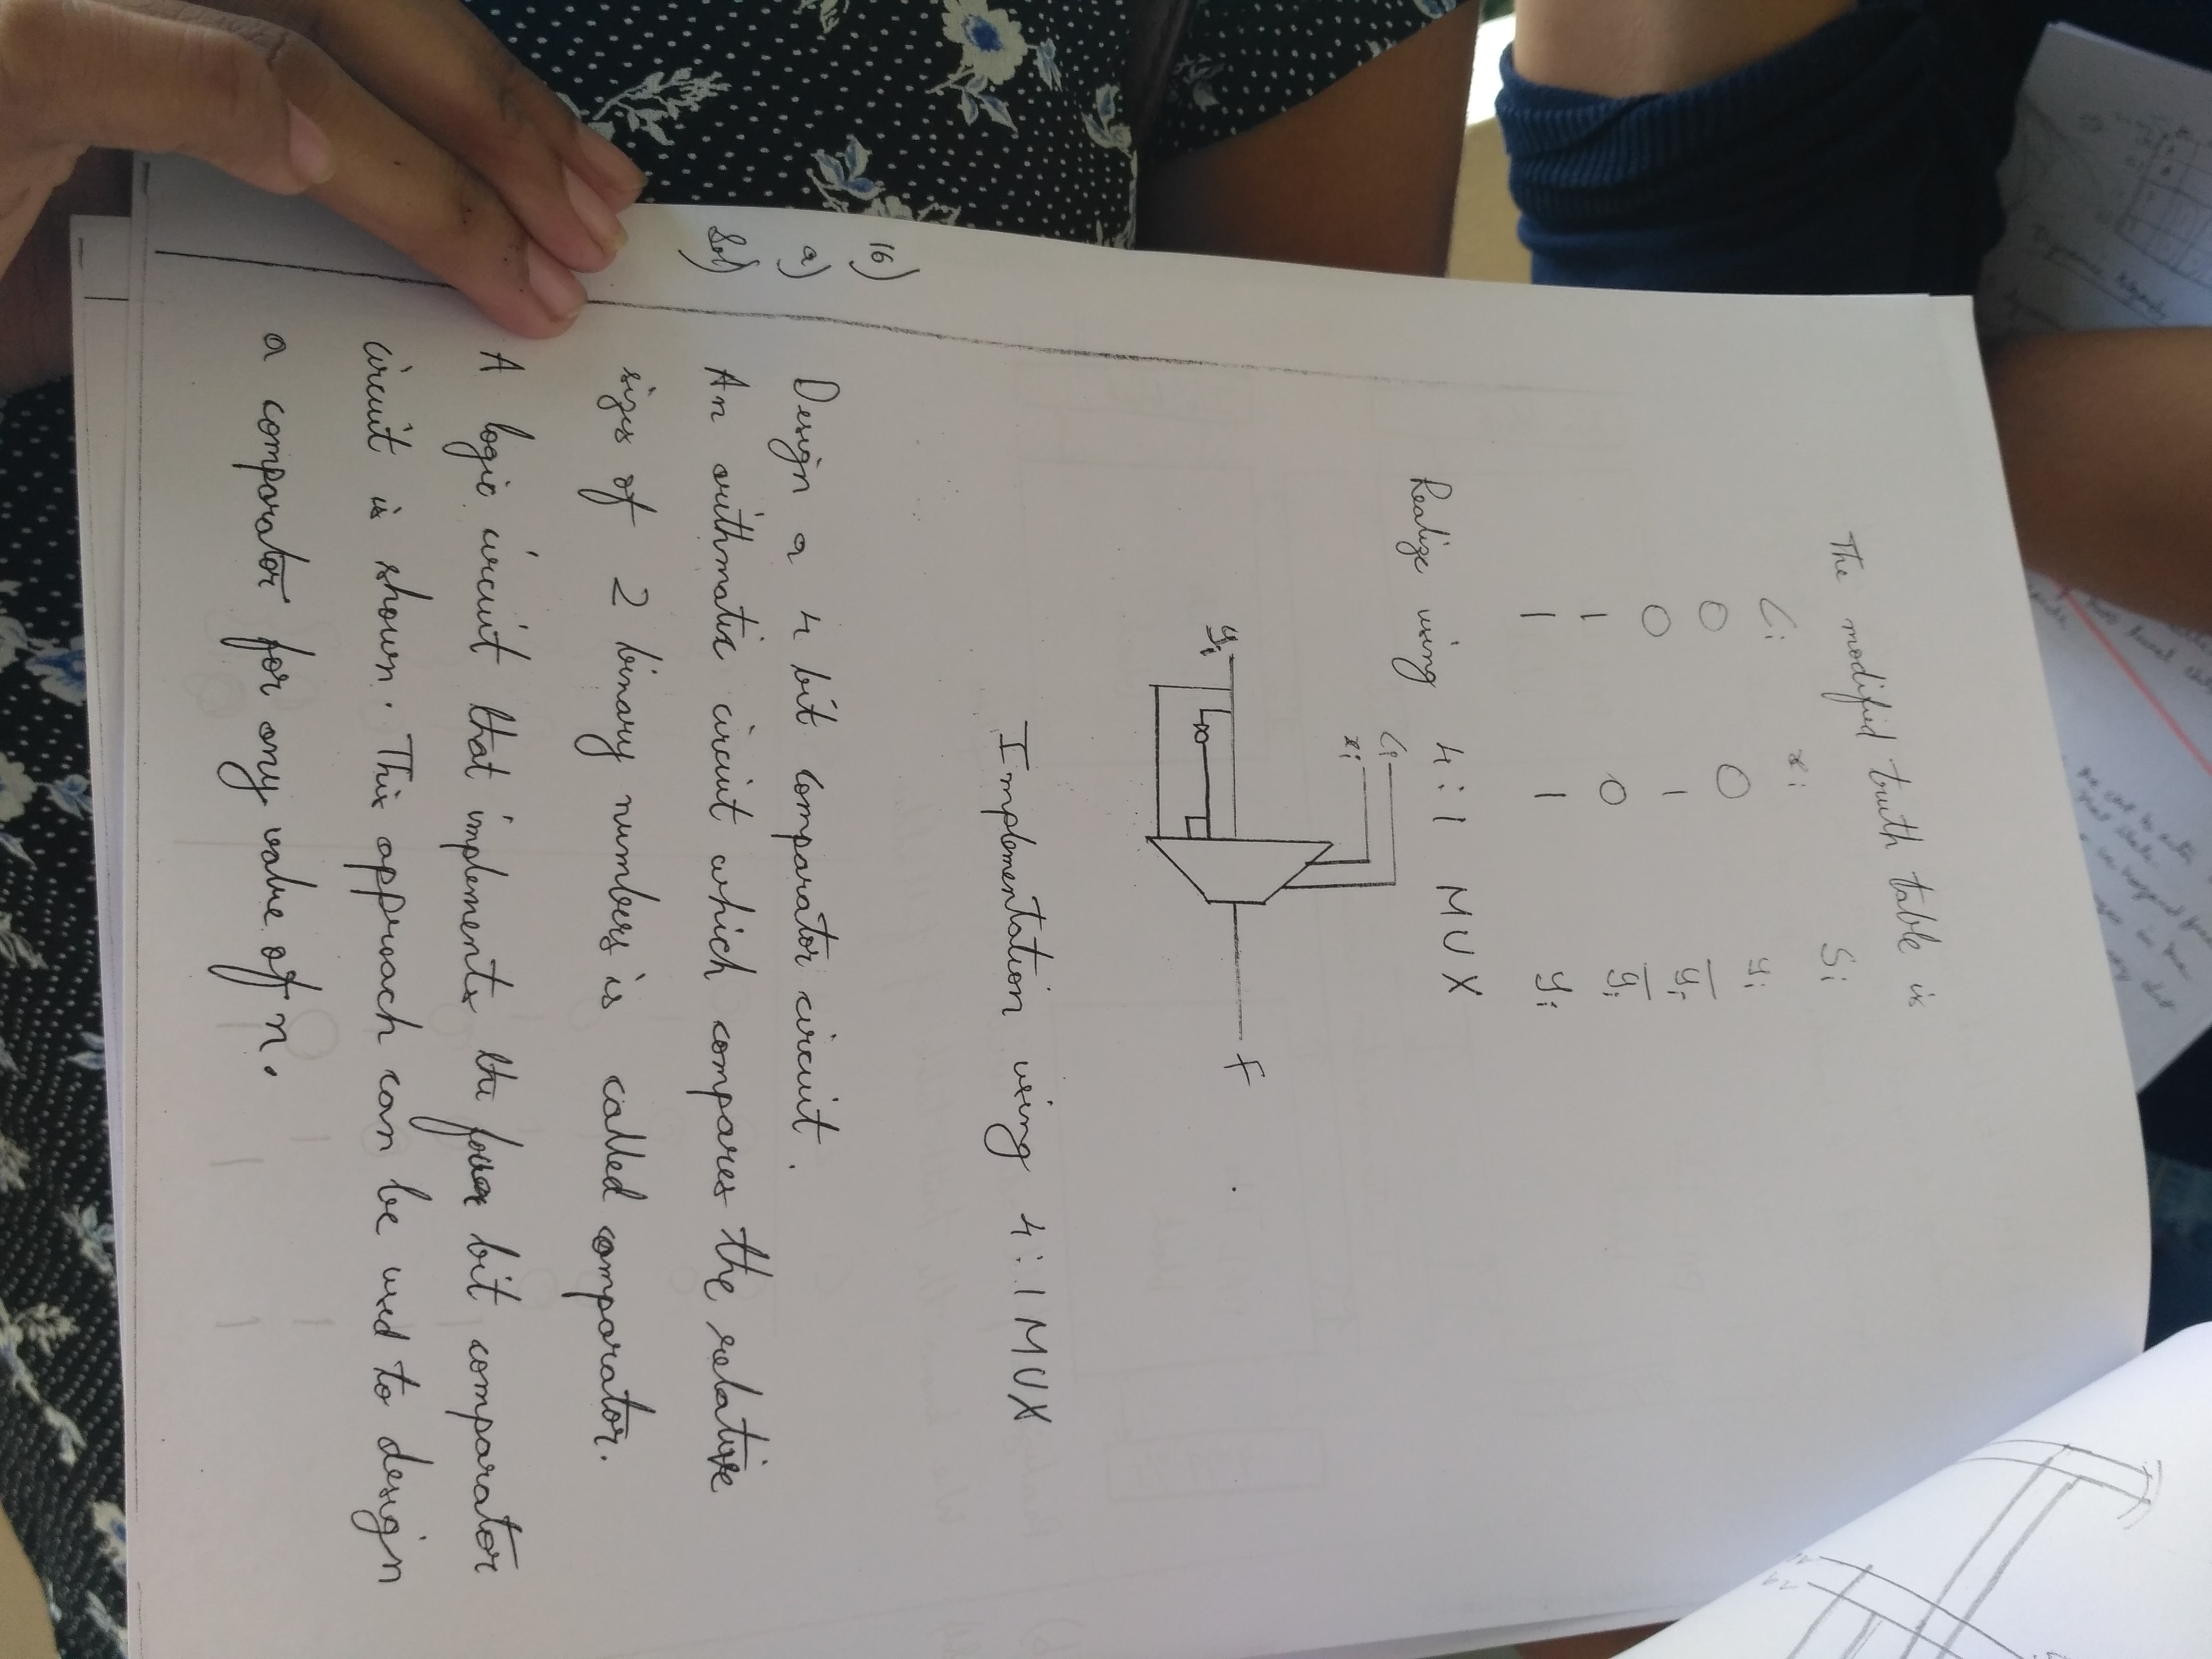 The modified truth table is
Ci xi Si
0 0 yi
0 1 y̅i
1 0 y̅i
1 1 yi
Realize using 4:1 MUX
Ci
xi
yi
F
Implementation using 4:1 MUX
16)
a) Design a 4 bit comparator circuit.
Sol) An arithmatic circuit which compares the relative
sizes of 2 binary numbers is called comparator.
A logic circuit that implements the four bit comparator
circuit is shown. This approach can be used to design
a comparator for any value of n.